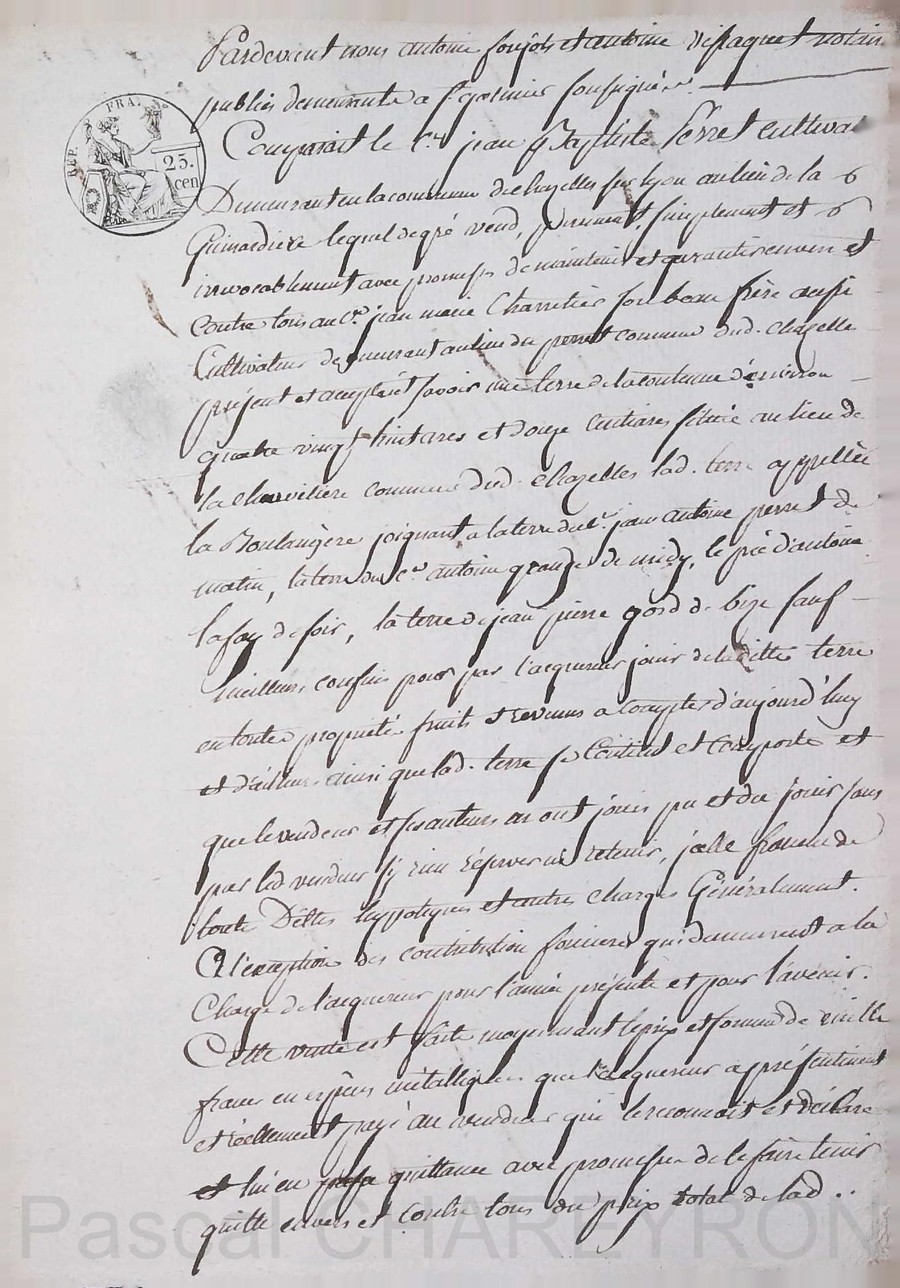 REP. FRA.
25.
cen
Pardevant nous antoine et antoine notair
publics demeurants a st galmier soussignés.
Comparait le Cen jean Baptiste Perret cultivat
Demeurant en la commune de chazelles sur lyon au lieu de la
Guinardiere lequel de gré vend, purement, simplement et
irrevocablement avec promesse de maintenir et garantir envers et
Contre tous au Cen. jean marie Charretier son beau frère aussi
Cultivateur demeurant au lieu du perret commune dud. chazelle
présent et acceptant savoir une terre de la contenue d'environ
quatre vingt huit ares et douze centiares située au lieu de
la commune dud. chazelles lad. terre appellée
la Boulangère joignant a la terre du Cen. jean antoine perret de
matin, la terre du Cen antoine grange de midy, le pré d'antoine
lafay de soir, la terre de jean pierre gord de bize sauf
meilleurs confins pour par l'acquereur jouir de la ditte terre
en toute propriété fruits et revenus a compter d'aujourd'huy
et d'ailleurs ainsi que lad. terre se Contient et Comporte et
que le vendeur et ses auteurs en ont joui pu et du jouir sans
par led vendeur s'y rien réserver ni retenir, icelle franche de
toute Dettes hypoteques et autre charges Généralement.
A l'exception des contribution foncieres qui demeurent a la
Charge de l'acquereur pour l'année présente et pour l'avenir.
Cette vente est faite moyennant le prix et somme de mille
francs en espèces métalliques que l'acquereur a présentement
et réellement payé au vendeur qui le reconnoit et déclare
et lui en passe quittance avec promesse de le faire tenir
quitte envers et contre tous du prix total de lad..
Pascal CHAREYRON